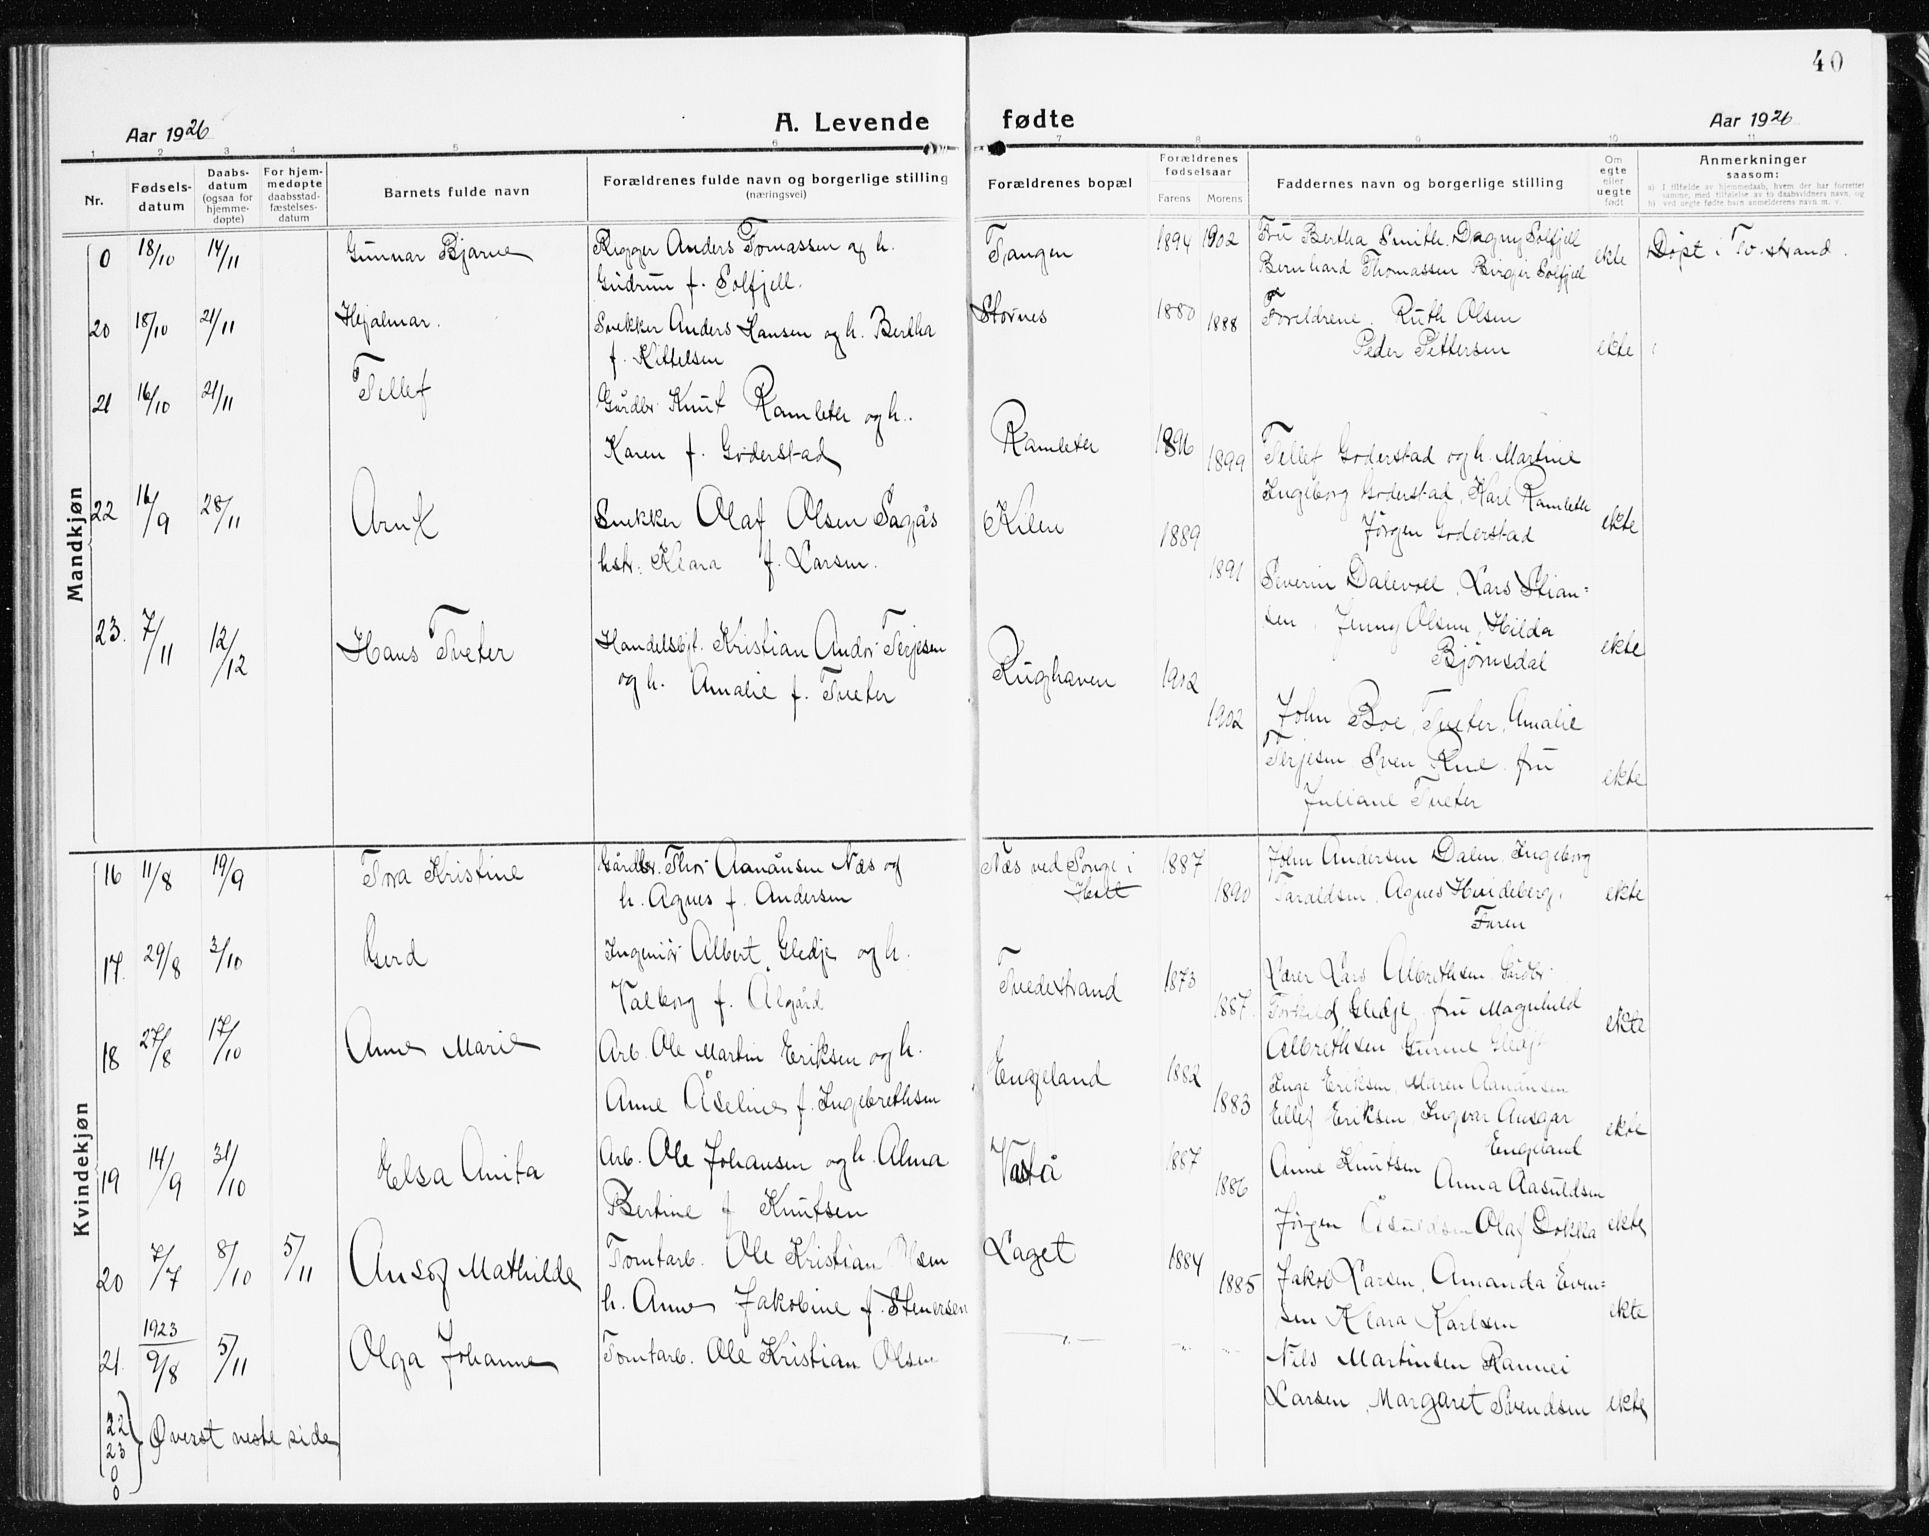 40
Aar 1926
A. Levende
fødte
Aar 1926
1 2 3 4 5 6 7 8 9 10 11
Nr.
Fødsels-
datum
Daabs-
datum
(ogsaa for
hjemme-
døpte)
For hjem-
medøpte
daabsstad-
fæstelses-
datum
Barnets fulde navn
Forældrenes fulde navn og borgerlige stilling
(næringsvei)
Forældrenes bopæl
Forældrenes
fødselsaar
Farens Morens
Faddernes navn og borgerlige stilling
Om
egte
eller
uegte
født
Anmerkninger
saasom:
a) I tilfælde av hjemmedaab, hvem der har forrettet
samme, med tilføielse av to daabsvidners navn, og
b) ved uegte fødte barn anmelderens navn m. v.
Mandkjøn
0 18/10 14/11 Gunnar Bjarne
Rigger Anders Tomassen og h.
Gudrun f. Solfjell.
Tangen 1894 1902
Fru Bertha Smith, Dagny Solfjell
Bernhard Thomassen Birger Solfjell
ekte
Døpt i Tv.strand.
20 18/10 21/11 Hjalmar.
Snekker Anders Hansen og h. Bertha
f. Kittelsen
Stornes 1880 1888
Foreldrene, Ruth Olsen
Peder Pettersen
ekte
21 16/10 21/11 Tellef
Gårdbr. Knut Ramleter og h.
Karen f. Goderstad
Ramleter 1896 1899
Tellef Goderstad og h. Martine
Ingeborg Goderstad, Karl Ramleter
Jørgen Goderstad
ekte
22 16/9 28/11 Arnt
Snekker Olaf Olsen Sagås
hstr: Klara f. Larsen.
Kilen 1889 1891
Severin Dalevoll, Lars Stian=
sen, Jenny Olsen, Hilda
Bjørnsdal
ekte
23. 7/11 12/12 Hans Tveter
Handelsbjt. Kristian Andor Terjesen
og h. Amalie f. Tveter
Rughaven 1902 1902
John Boe, Tveter, Amalie
Terjesen Sven Rue, fru
Juliane Tveter
ekte
Kvindekjøn
16 11/8 19/9 Tora Kristine
Gårdbr. Thor Aanånsen Næs og
h. Agnes f. Andersen
Næs ved Songe i
Holt
1887 1890
John Andersen Dalen, Ingeborg
Taraldsen, Agnes Hvideberg,
Faren
ekte
17. 29/8 3/10 Gerd
Ingeniør Albert Gledje og h.
Valborg f. Ålgård
Tvedestrand 1873 1887.
Lærer Lars Albrethsen, Gårdbr.
Torkild Gledje, fru Magnhild
Albrethsen Gunne Gledje
ekte
18 27/8 17/10 Anne Marie
Arb. Ole Martin Eriksen og h.
Anne Åseline f. Ingebrethsen
Engeland 1882 1883
Inge Eriksen, Maren Aanånsen
Ellef Eriksen, Ingvar Ansgar
Engeland
ekte
19 14/9 31/10 Elsa Anita
Arb. Ole Johansen og h. Alma
Bertine f Knutsen
Vastå 1887 1886
Anne Knutsen Anna Aasuldsen
Jørgen Åsuldsen Olaf Dokka
ekte
20 7/7 8/10 5/11 Ansog Mathilde
Tomtarb. Ole Kristian Olsen
h. Anne Jakobine f. Stenersen
Laget 1884 1885
Jakob Larsen, Amanda Even=
sen Klara Karlsen
ekte
21. 1923 9/8 5/11 Olga Johanne
Tomtarb. Ole Kristian Olsen
— " — - " - - " -
Nils Martinsen Rannei
Larsen, Margaret Svendsen
ekte
22
23
0
0
Øverst neste side